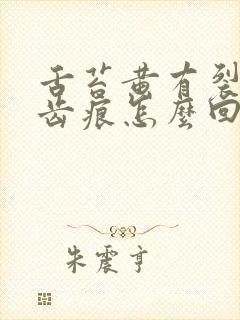 舌苔黄有裂
齿痕怎麼回
朱震亨